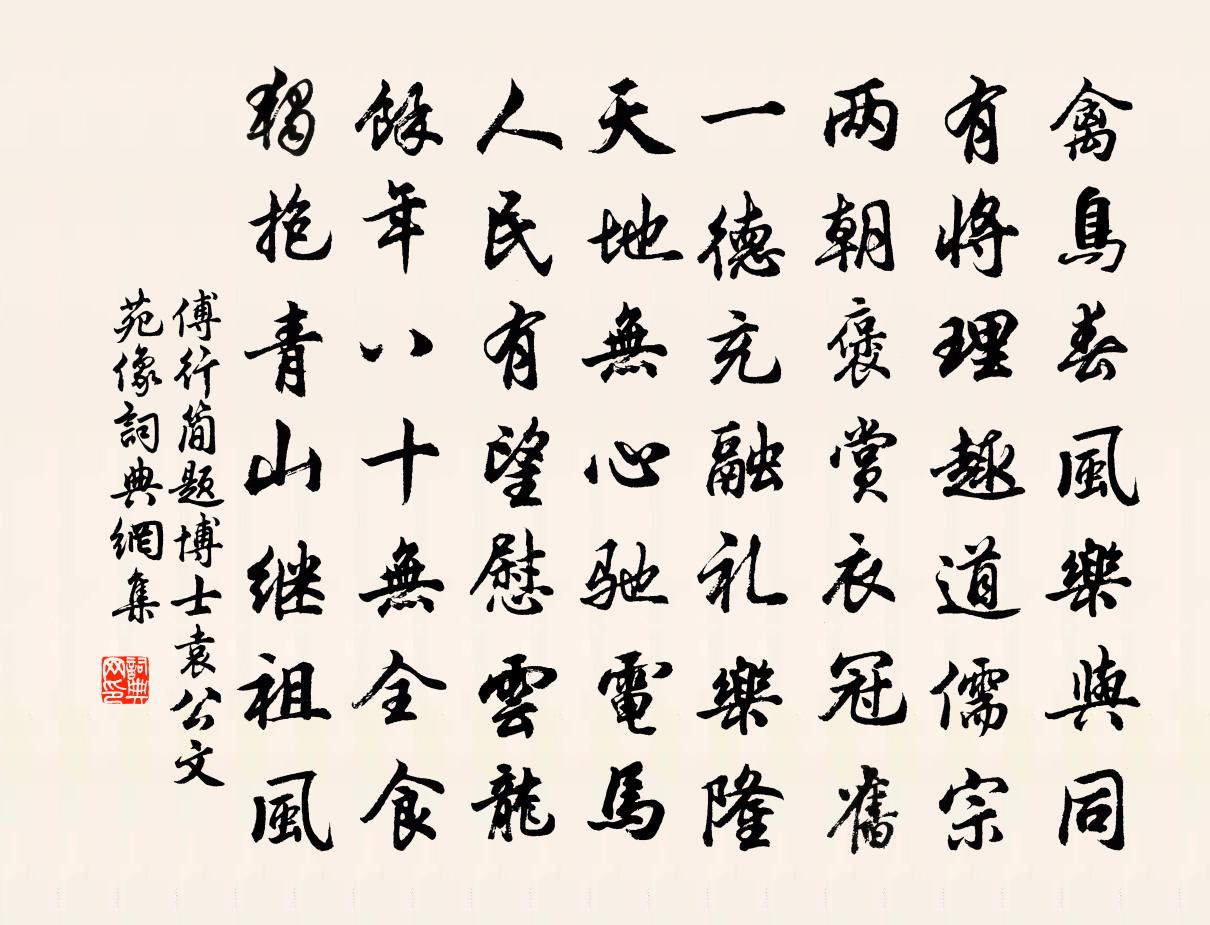 禽鳥春風樂與同
有將理趣道儒宗
两朝褒賞衣冠舊
一德充融礼樂隆
天地無心馳電馬
人民有望慰雲龍
餘年八十無全食
獨抱青山继祖風
傅行简题博士袁公文
苑像詞典網集
詞典网印